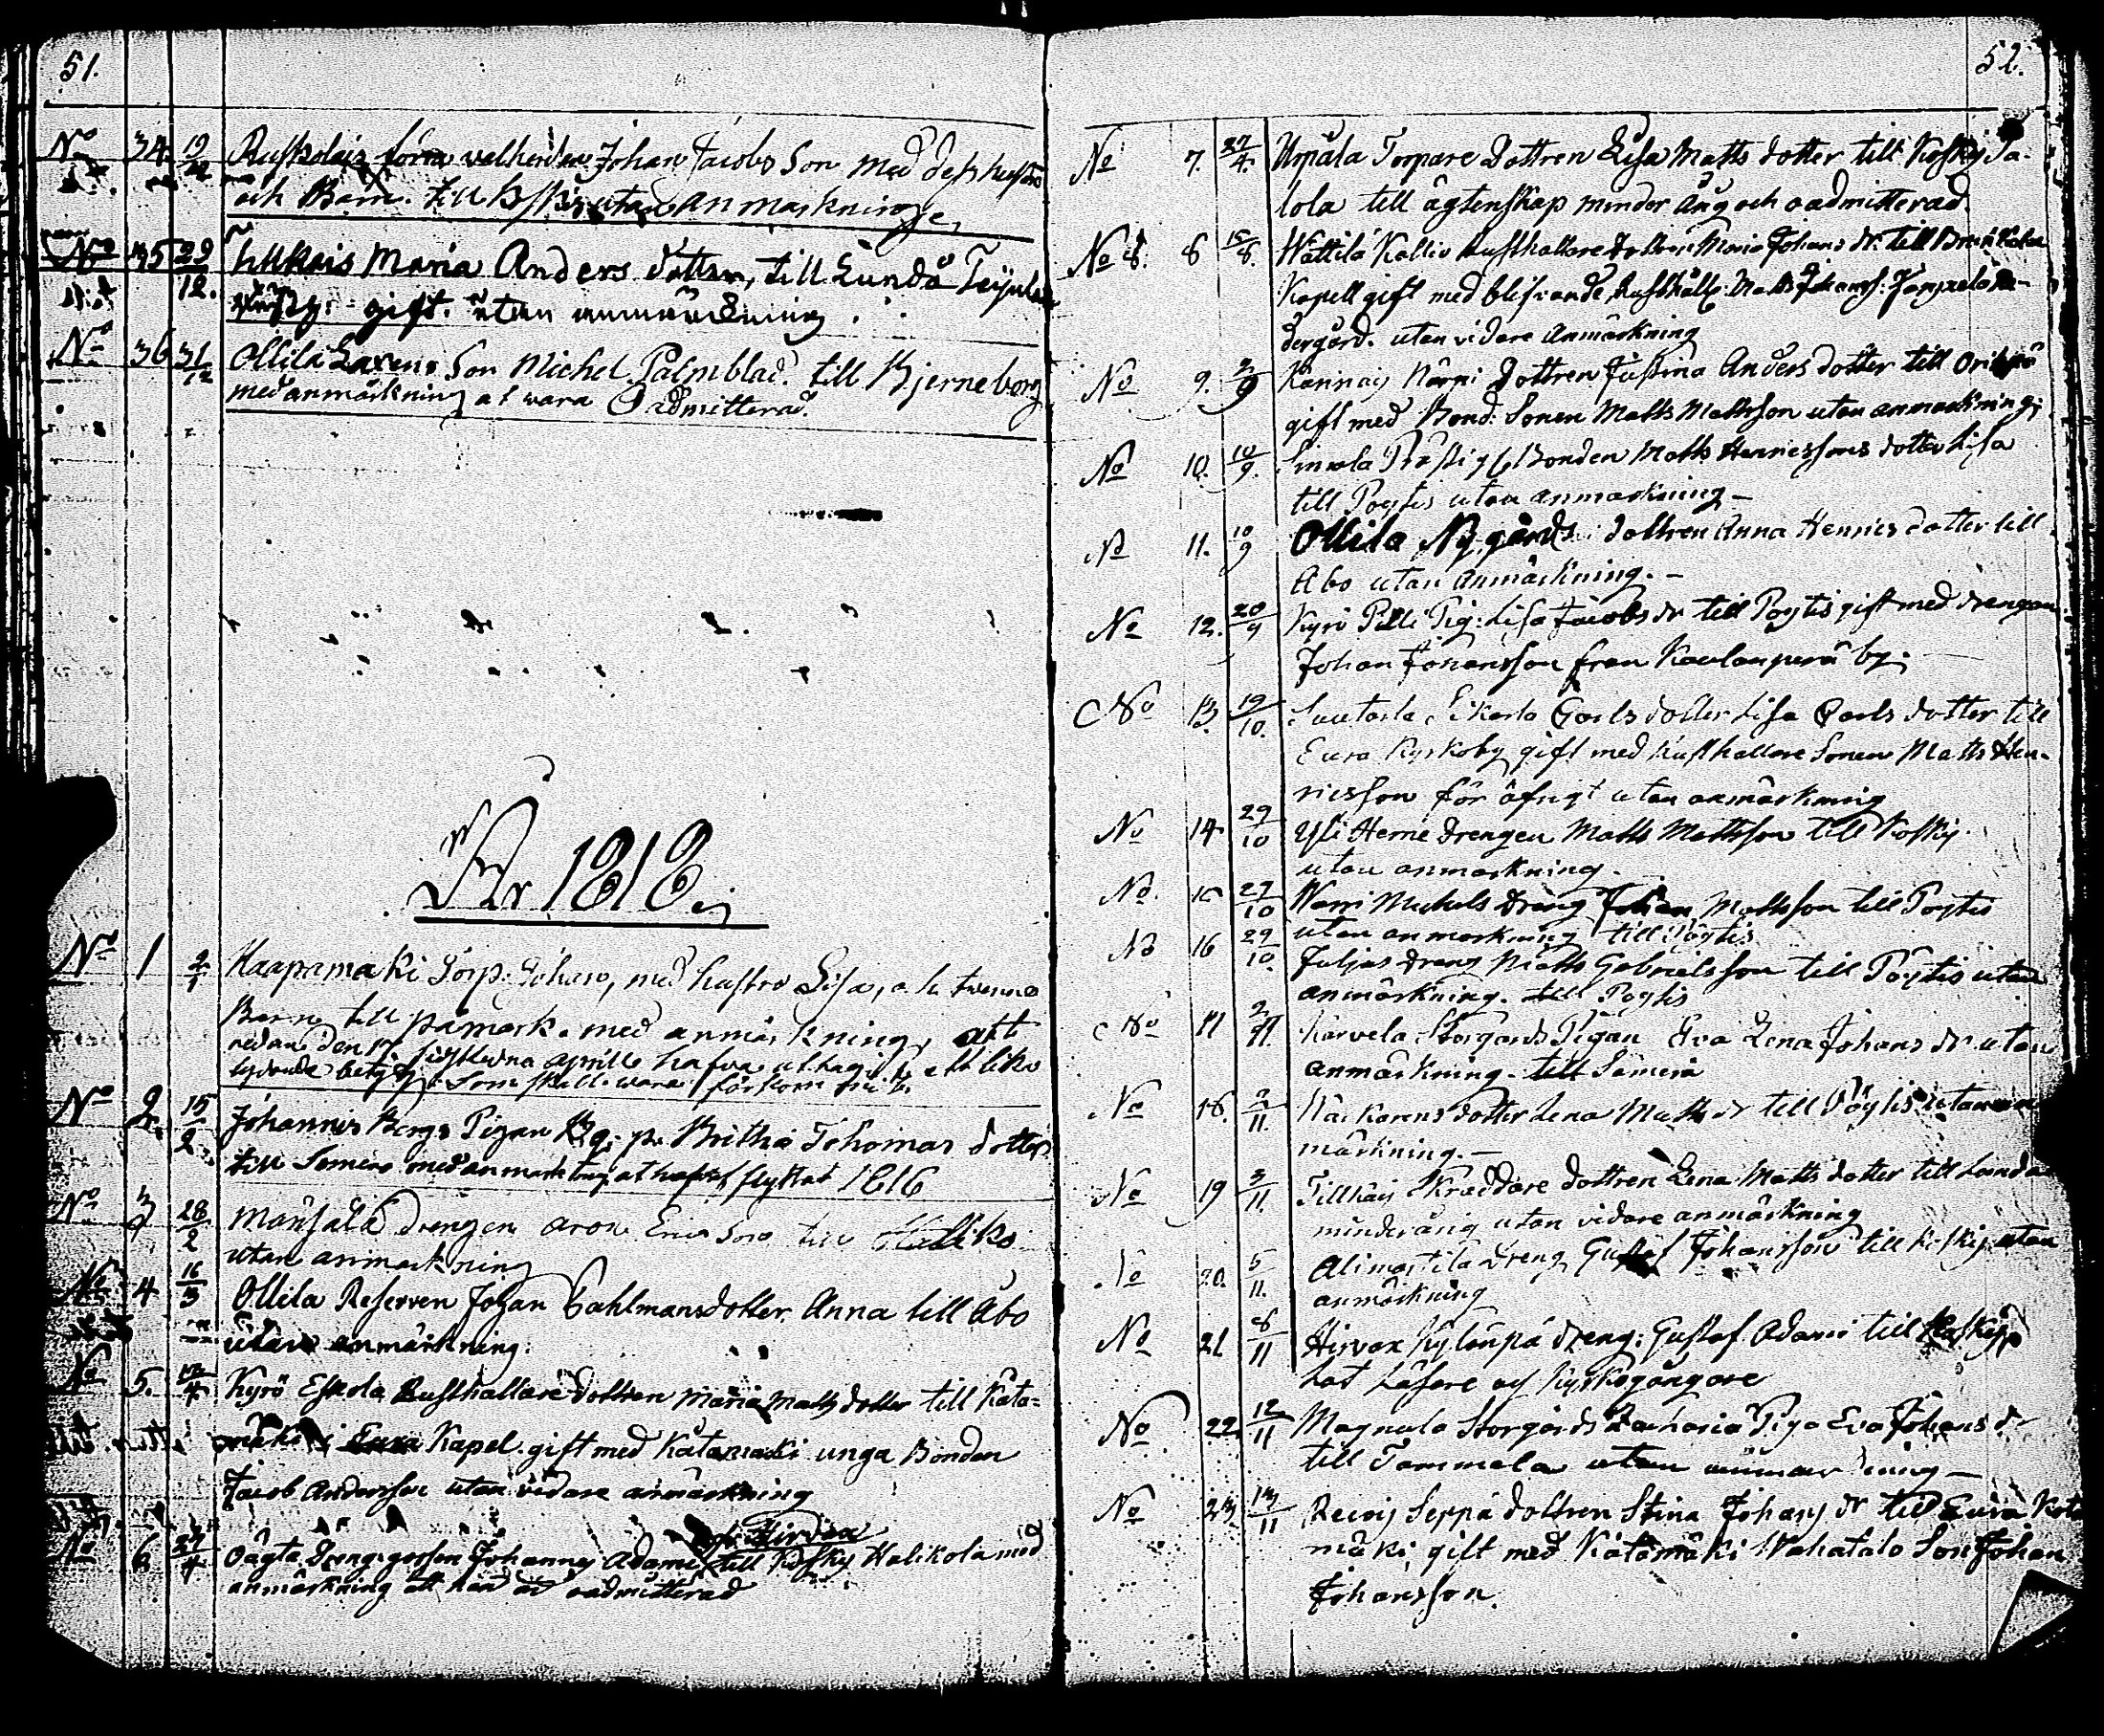 51.
No 34 19/12 Rusko förra välherden Johan Jacobs Son med dess hustro
och Barn. till utan anmarkning
No 35 29/12. Maria Anders dotter, till Lundo
gift. utan anmärckning.
No 36 31/12 Ollila Son Michel Palmblad. till Bjerneborg
med anmärkning at wara Oadmitterad.
År 1818.
No 1 2/1 Haapamaki Torp. Johan, med hustro Lisa, och twenne
Barn till pämark. med anmärkning, att
redan den 17 sistledna aprill hafva uttagit ett lika
lydande betyg. Som skall wara förkommit.
No 2. 15/2 Johannis Bergs Pigan Britha Thomas dotter
till Somero med anmarkning at hafva flyttat 1816
No 3 28/2 Mänsälä drengen aron Ericsson till Halliko
utan anmarkning
No 4 16/3 Ollila Reserven Johan Cahlmans dotter Anna till Åbo
utan anmärkning.
No 5. 12/4 Kyrö Eskola Rusthallare dottren Maria Matts dotter till Kata-
mäki i Eura Kapel. gift med Kätamaki unga Bonden
Jacob Andersson utan vidare anmärkning
fr. Hirvox
No 6 27/4 Oägta Drengegossen Johannes Adami till Kosky Halikola med
anmärkning att han är oadmitterad
52.
No 7. 27/4. Torpare Dottren Lisa Matts dotter till Kosky Ta-
lola till ägtenskap mindor äng och oadmitterad.
No 8. 8 15/8. Wättilä Kallio Rusthallare dottren Maria Johans dr. till
Kapell gift med blifvande Rusthåll: Matts Johanss:
dergård. utan vidare Anmärkning
No 9. 2/9 Karinais Härpi Dottren Justina Anders dotter till Oripää
gift med Bond: Sonen Matts Mattsson utan anmarkning
No 10. 10/9. Bonden Matts Henricssons dotter Lisa
till Poytis utan anmarkning –
No 11. 10/9 Ollila Nygårds dottren Anna Henrics dotter till
Abo utan Anmärkning. –
No 12. 20/9 Kyrö Pilli Pig: Lisa Jacobs dr till Poytis gift med drengen
Johan Johansson fran Kaulanperä by.
No 13. 19/10. Sautarla Sikarla Carls dotter Lisa Carls dotter till
Eura Kyrkoby gift med Rusthallare Sonen Matts Hen-
ricsson för öfrigt utan anmärkning
No 14 29/10 Yli Herne drengen Matts Mattsson till Kosky.
utan anmarkning.
No. 15 29/10 Warri Michels dräng Johan Mattsson till Poytis
utan anmarkning till Pöytis
No 16 29/10. Juljas dreng Matts Gabrielsson till Pöytis utan
anmärkning. till Poytis
No 17 2/11. Karvela Storgårds Pigan Eva Lena Johans dr utan
anmärkning. till Somero
No 18. 2/11. dotter Lena Matts dr till Pöytis utan an
märkning. –
No 19 3/11. Tillhäis Skräddare dottren Lena Matts dotter till Lundo
minderärig utan vidare anmärkning
No 20. 5/11. Alimarttila Dreng Gustaf Johansson till Kosky utan
anmärkning
No 21 8/11 Hirvox Kylänpä dreng: Gustaf Adami till Koskis
Lat Läsare och Kyrkogångare
No 22 12/11 Magnula Storgårds Zacharia Piga Eva Johans dr
till Tammela utan anmarckning –
No 23. 13/11 Seppä dottren Stina Johans dr till Eura Kata
mäki, gift med Katamäki Wahatalo Son Johan
Johansson.